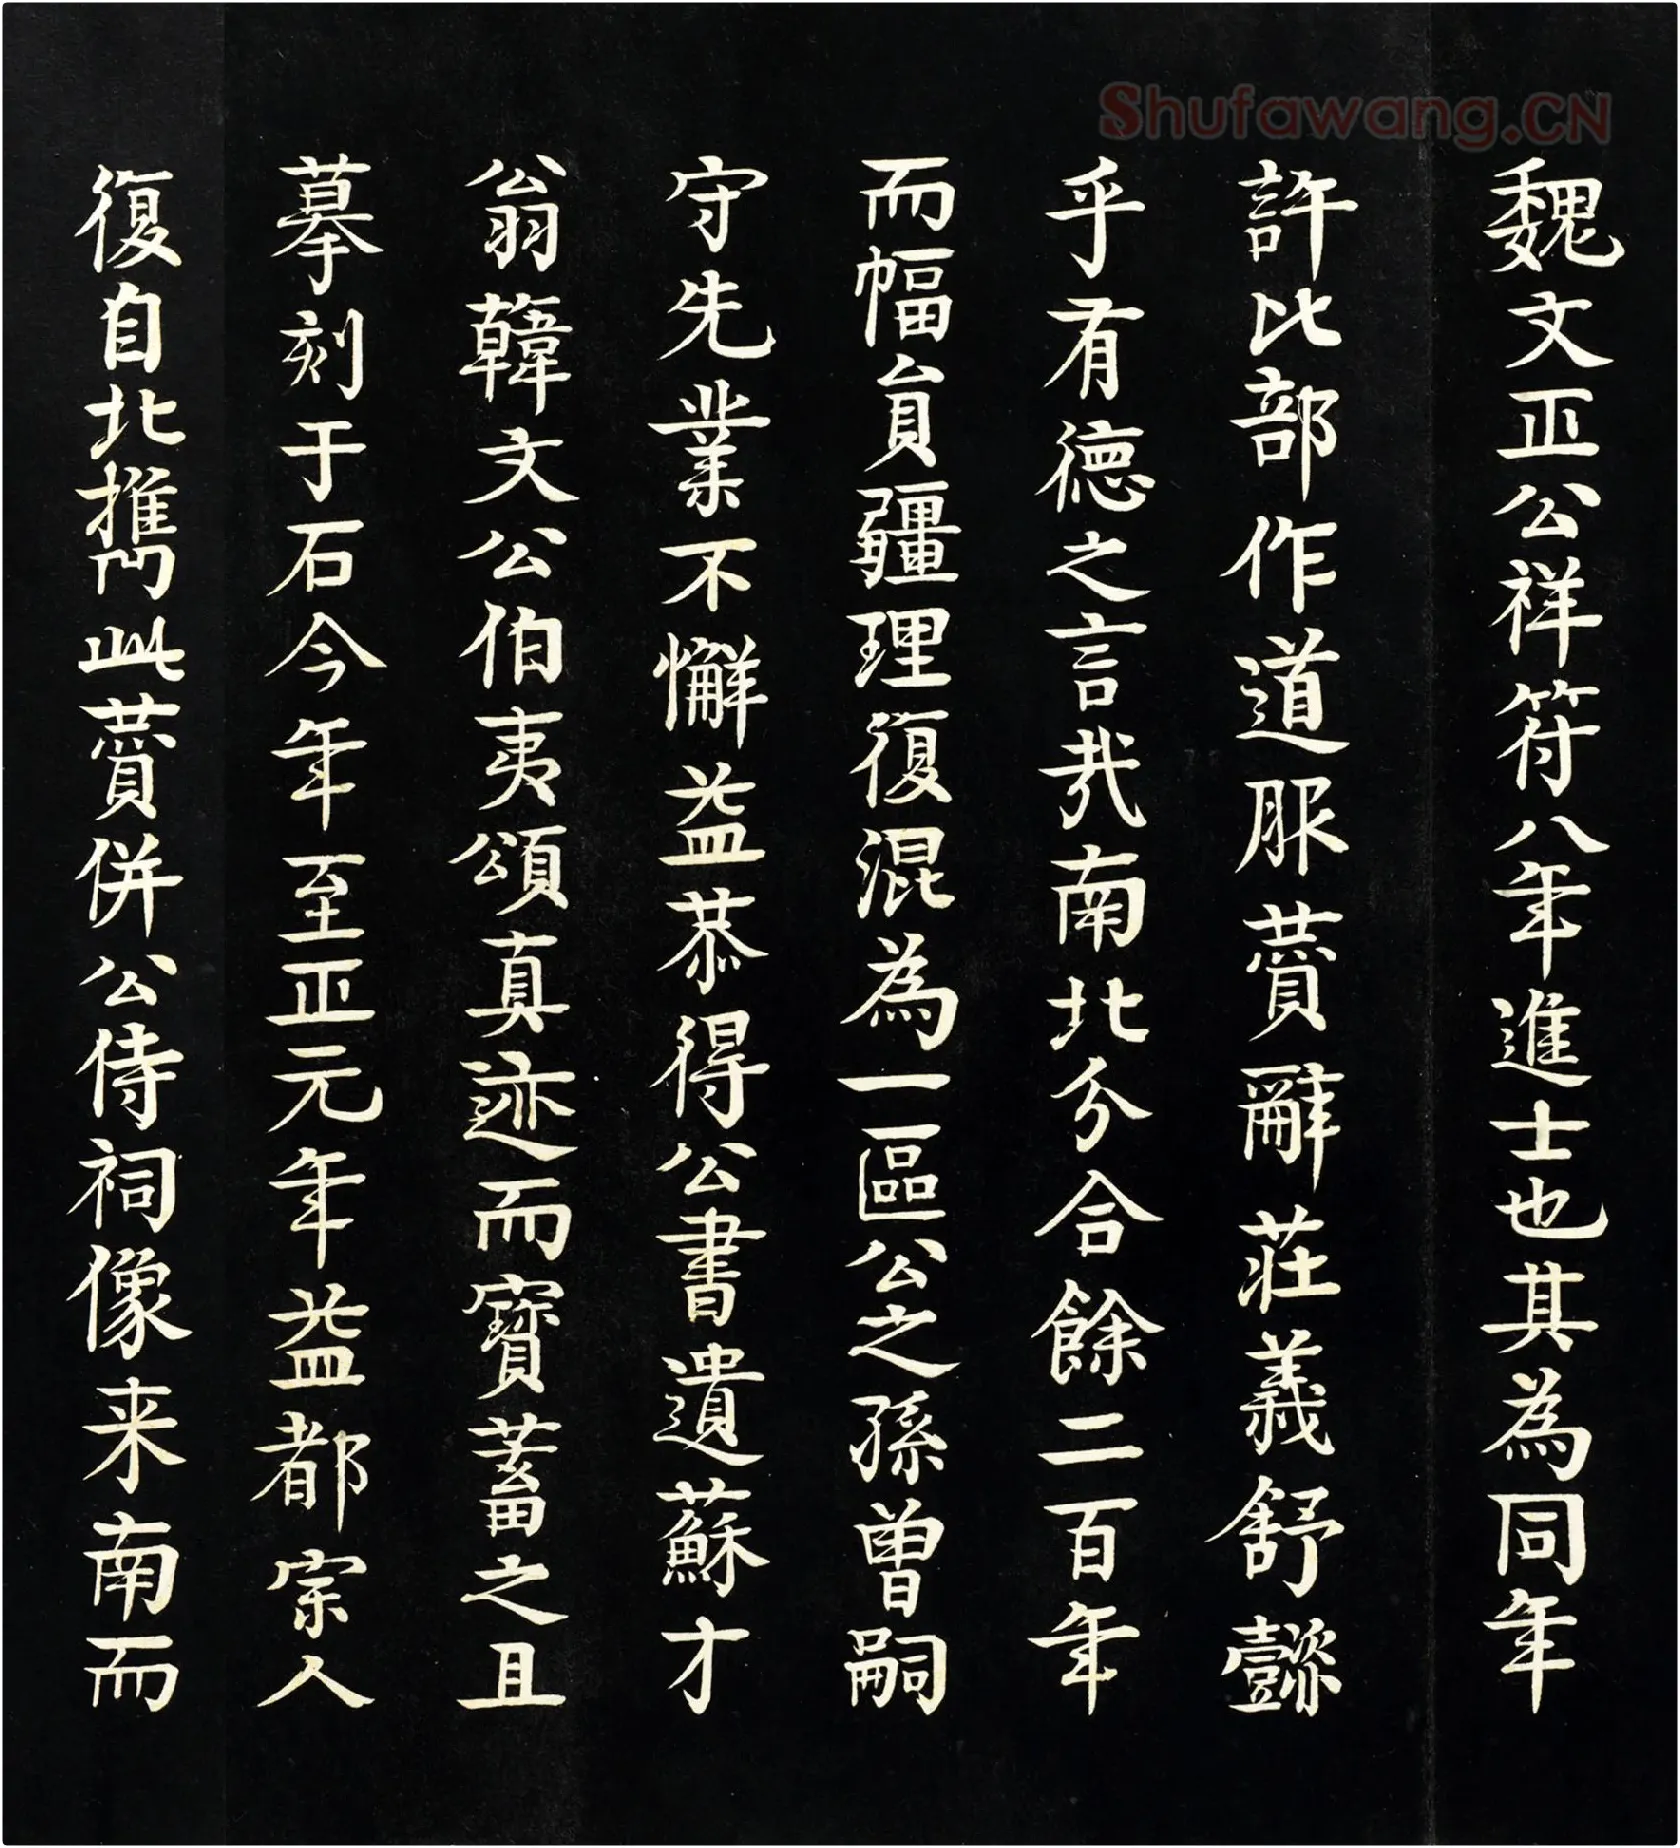 Shufawang.CN
魏文正公祥符八年進士也其為同年
許比部作道服賛辭莊義舒懿
乎有德之言哉南北分合餘二百年
而幅員疆理復混為一區公之孫曾嗣
守先業不懈益恭得公書遺蘇才
翁韓文公伯夷頌真迹而寶蓄之且
摹刻于石今年至正元年益都宗人
復自北携此賛併公侍祠像来南而